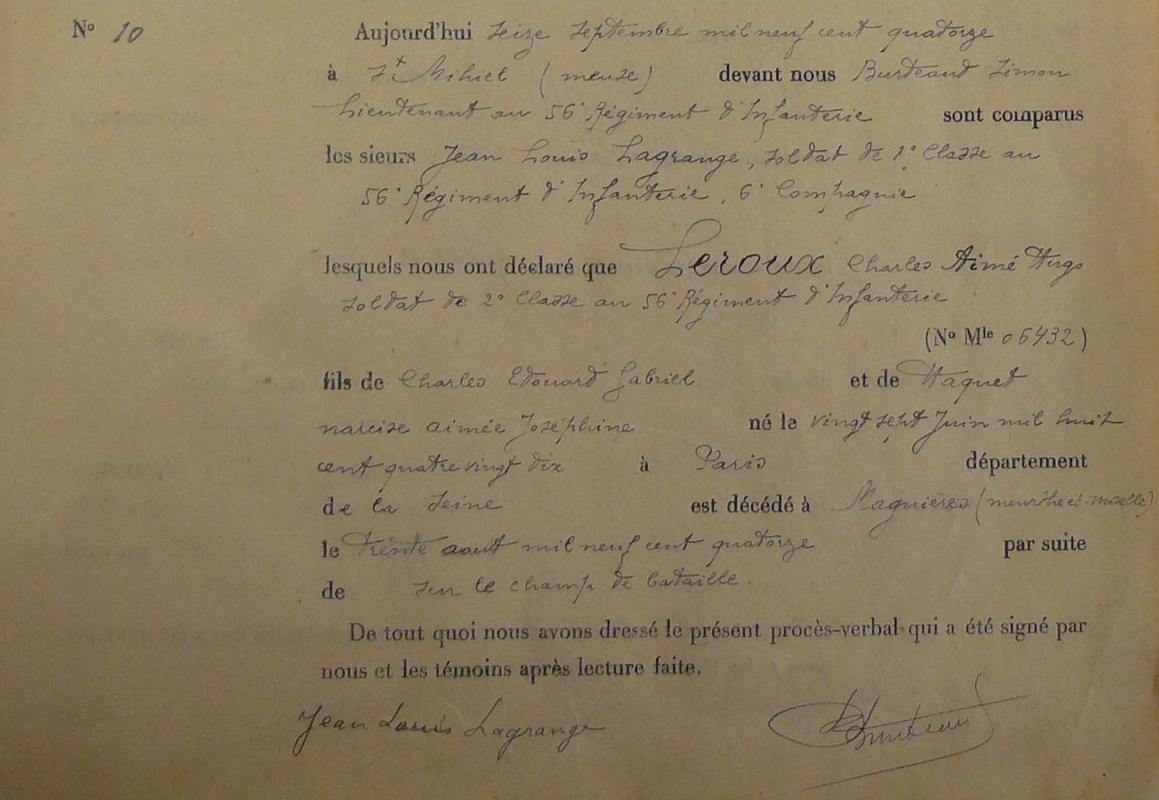 N° 10
Aujourd'hui seize septembre mil neuf cent quatorze
à St Mihiel (meuse) devant nous Burdeaud Simon
Lieutenant au 56e Régiment d'Infanterie sont comparus
les sieurs Jean Louis Lagrange, soldat de 1e Classe au
56e Régiment d'Infanterie, 6e Compagnie
lesquels nous ont déclaré que Leroux Charles Aimé Hugo
soldat de 2e Classe au 56e Régiment d'Infanterie
(N° Mle 06432)
fils de Charles Edouard Gabriel et de Haquet
narcise aimée Joséphine né le vingt sept Juin mil huit
cent quatre vingt dix à Paris département
de la Seine est décédé à Magnières (meurthe et-moselle)
le trente aout mil neuf cent quatorze par suite
de sur le champ de bataille.
De tout quoi nous avons dressé le présent procès-verbal qui a été signé par
nous et les témoins après lecture faite.
Jean Louis Lagrange